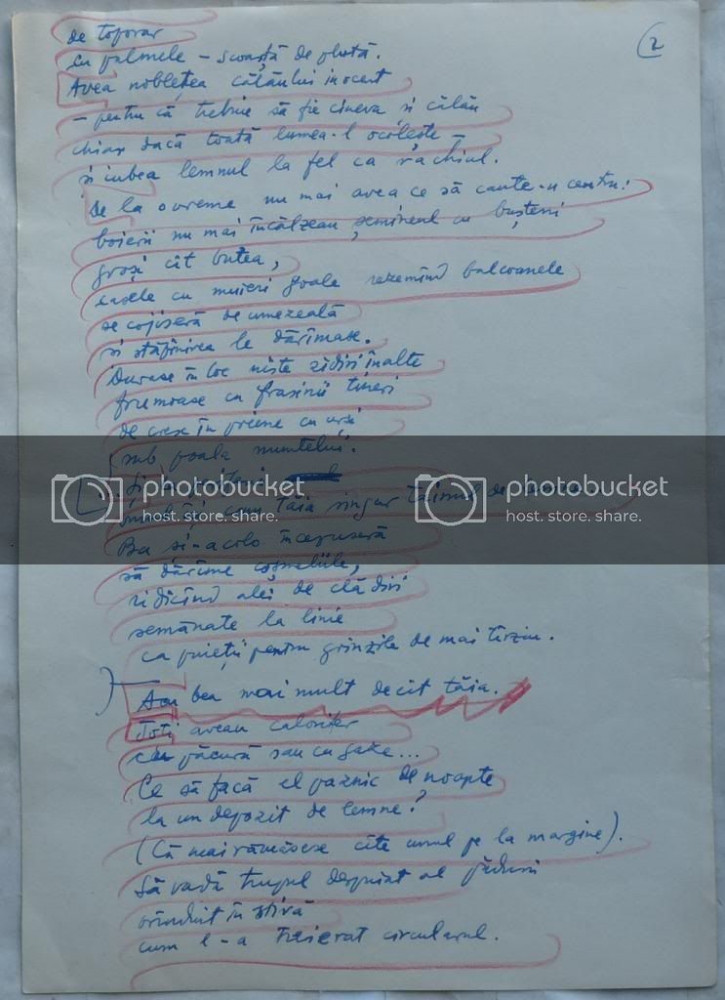 2
de toporar
cu palmele - scoarță de plută.
Avea noblețea călăului inocent
- pentru că trebuie să fie cineva și călău
chiar dacă toată lumea-l ocolește -
și iubea lemnul la fel ca rachiul.
De la o vreme nu mai avea ce să caute-n centru:
boierii nu mai încălzeau șemineul cu bușteni
groși cît butea,
casele cu muieri goale rezemînd balcoanele
se cojiseră de umezeală
și stăpînirea le dărîmase.
Durase în loc niște zidiri înalte
frumoase ca frasinii tineri
de cresc în poiene cu urși
sub poala muntelui.
photobucket
host. store. share.
photobucket
host. store. share.
tăia singur
Ba și-acolo începuseră
să dărîme
ridicînd alei de clădiri
semănate la linie
ca puieții pentru grinzile de mai tîrziu.
bea mai mult decît tăia.
Toți aveau calorifer
cu păcură sau cu gaze...
Ce să facă el paznic de noapte
la un depozit de lemne?
(Că mai rămăsese cîte unul pe la margine).
Să vadă trupul despuiat al pădurii
orînduit în stivă
cum l-a treierat circularul.